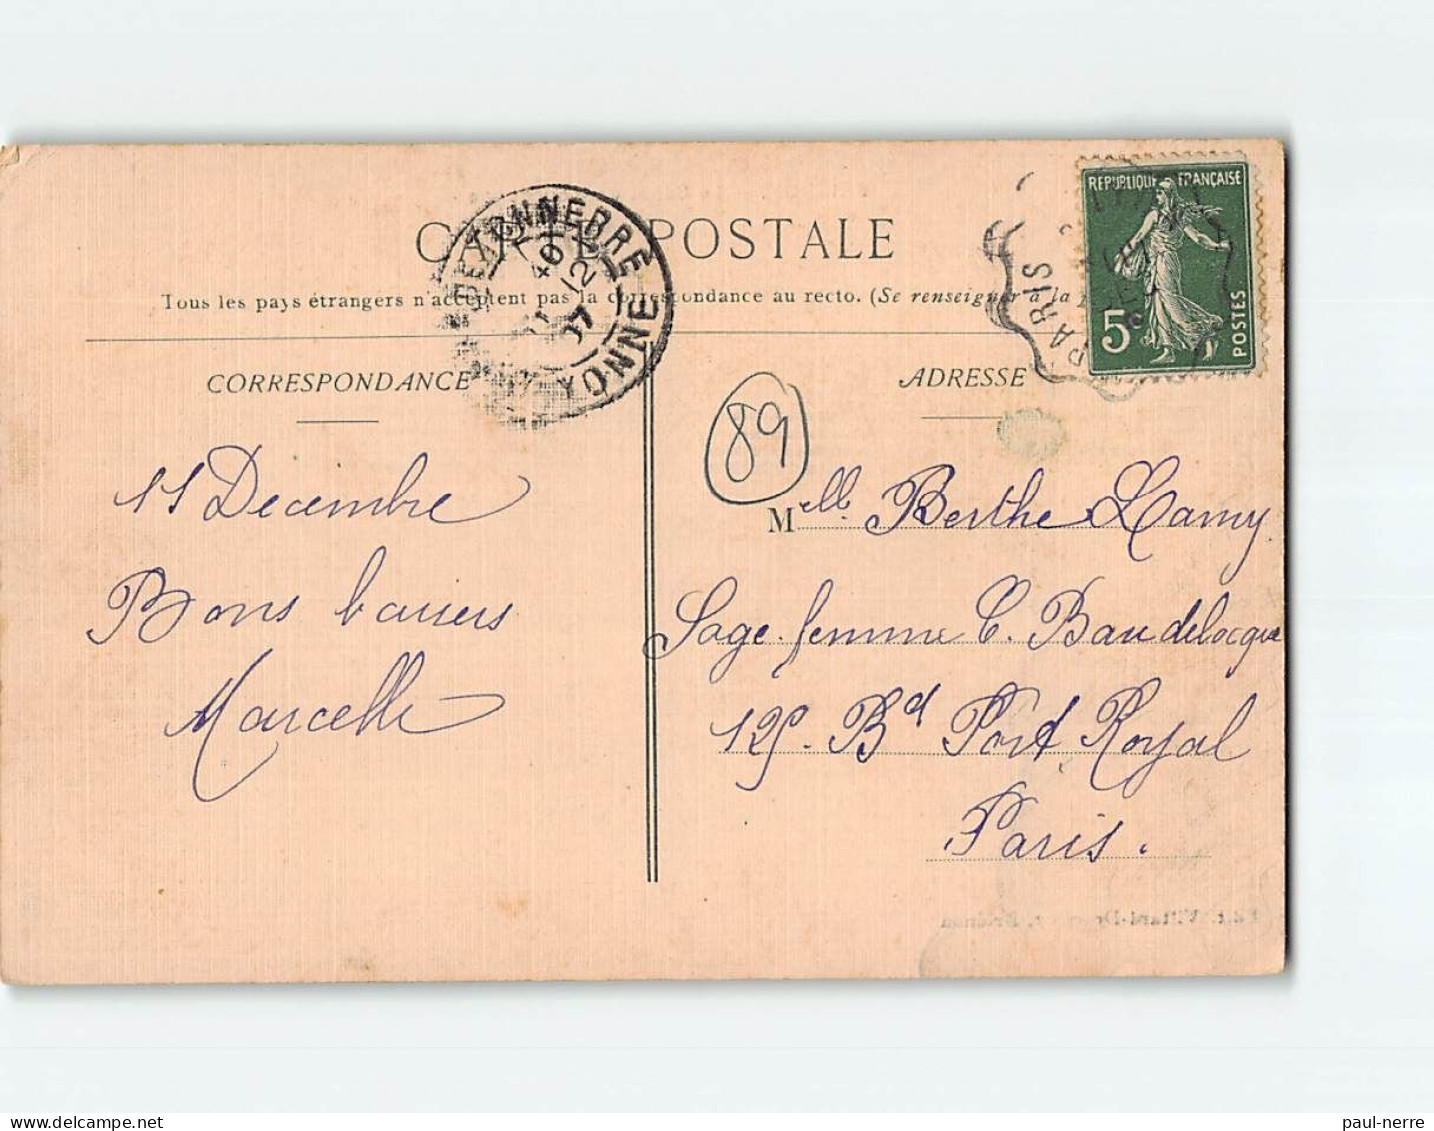 CARTE POSTALE
Tous les pays étrangers n'acceptent pas la correspondance au recto. (Se renseigner à la
CORRESPONDANCE
ADRESSE
TONNERRE
YONNE
40
12
07
PARIS
REPUBLIQUE FRANÇAISE
5
POSTES
89
11 Decembre
Bons baisers
Marcelle
M elle Berthe Lamy
Sage-femme C. Baudelocque
125. Bd Port Royal
Paris.
paul-nerre